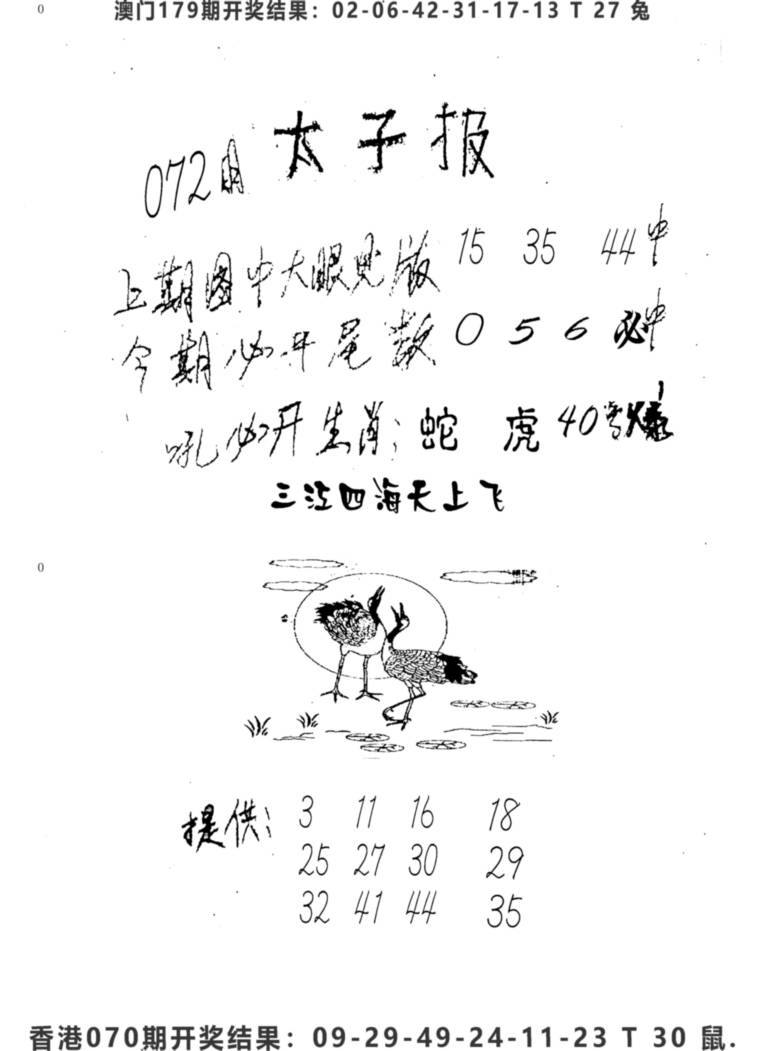 0
澳门179期开奖结果：02-06-42-31-17-13 T 27 兔
太子报
072期
上期图中大眼见版 15 35 44中
今期必开尾数 0 5 6 必中
吼必开生肖：蛇 虎 40号爆
三江四海天上飞
0
提供： 3 11 16 18
25 27 30 29
32 41 44 35
香港070期开奖结果：09-29-49-24-11-23 T 30 鼠.